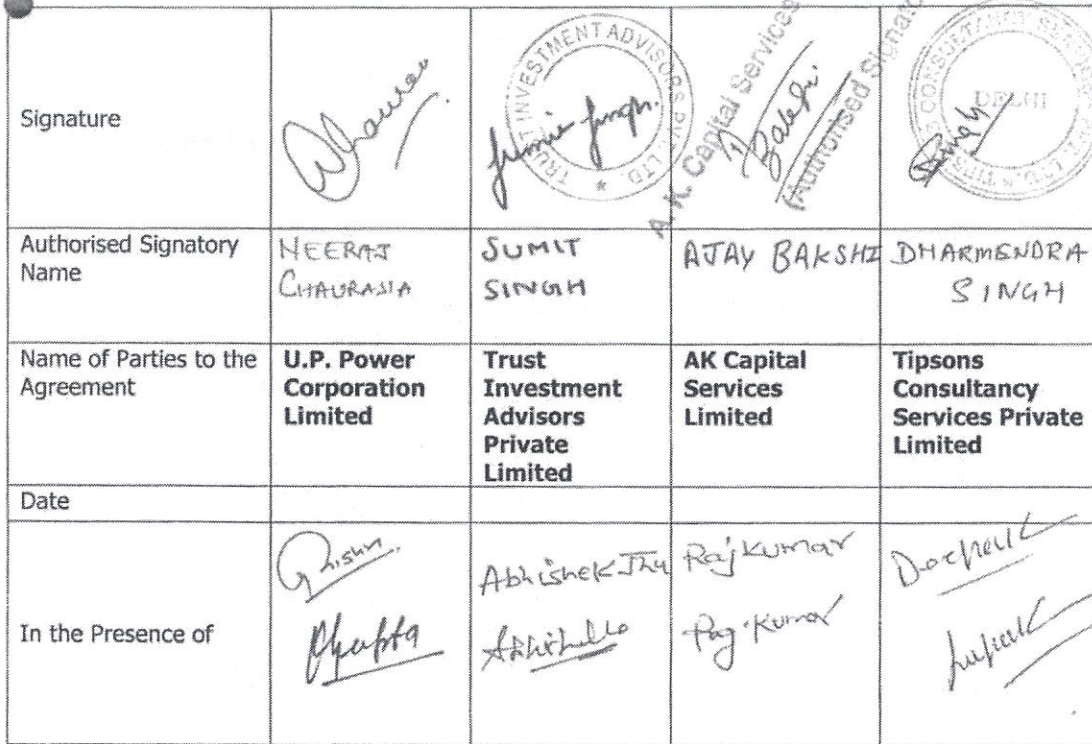 Signature
TRUST INVESTMENT ADVISORS PVT. LTD.
A. K. Capital Services
Bakshi
(Authorised Signato
DELHI
Singh
Authorised Signatory
Name
NEERAJ
CHAURASIA
SUMIT
SINGH
AJAY BAKSHI
DHARMENDRA
SINGH
Name of Parties to the
Agreement
U.P. Power
Corporation
Limited
Trust
Investment
Advisors
Private
Limited
AK Capital
Services
Limited
Tipsons
Consultancy
Services Private
Limited
Date
In the Presence of
Gupta
Abhishek Jha
Raj Kumar
Raj Kumar
Deepak